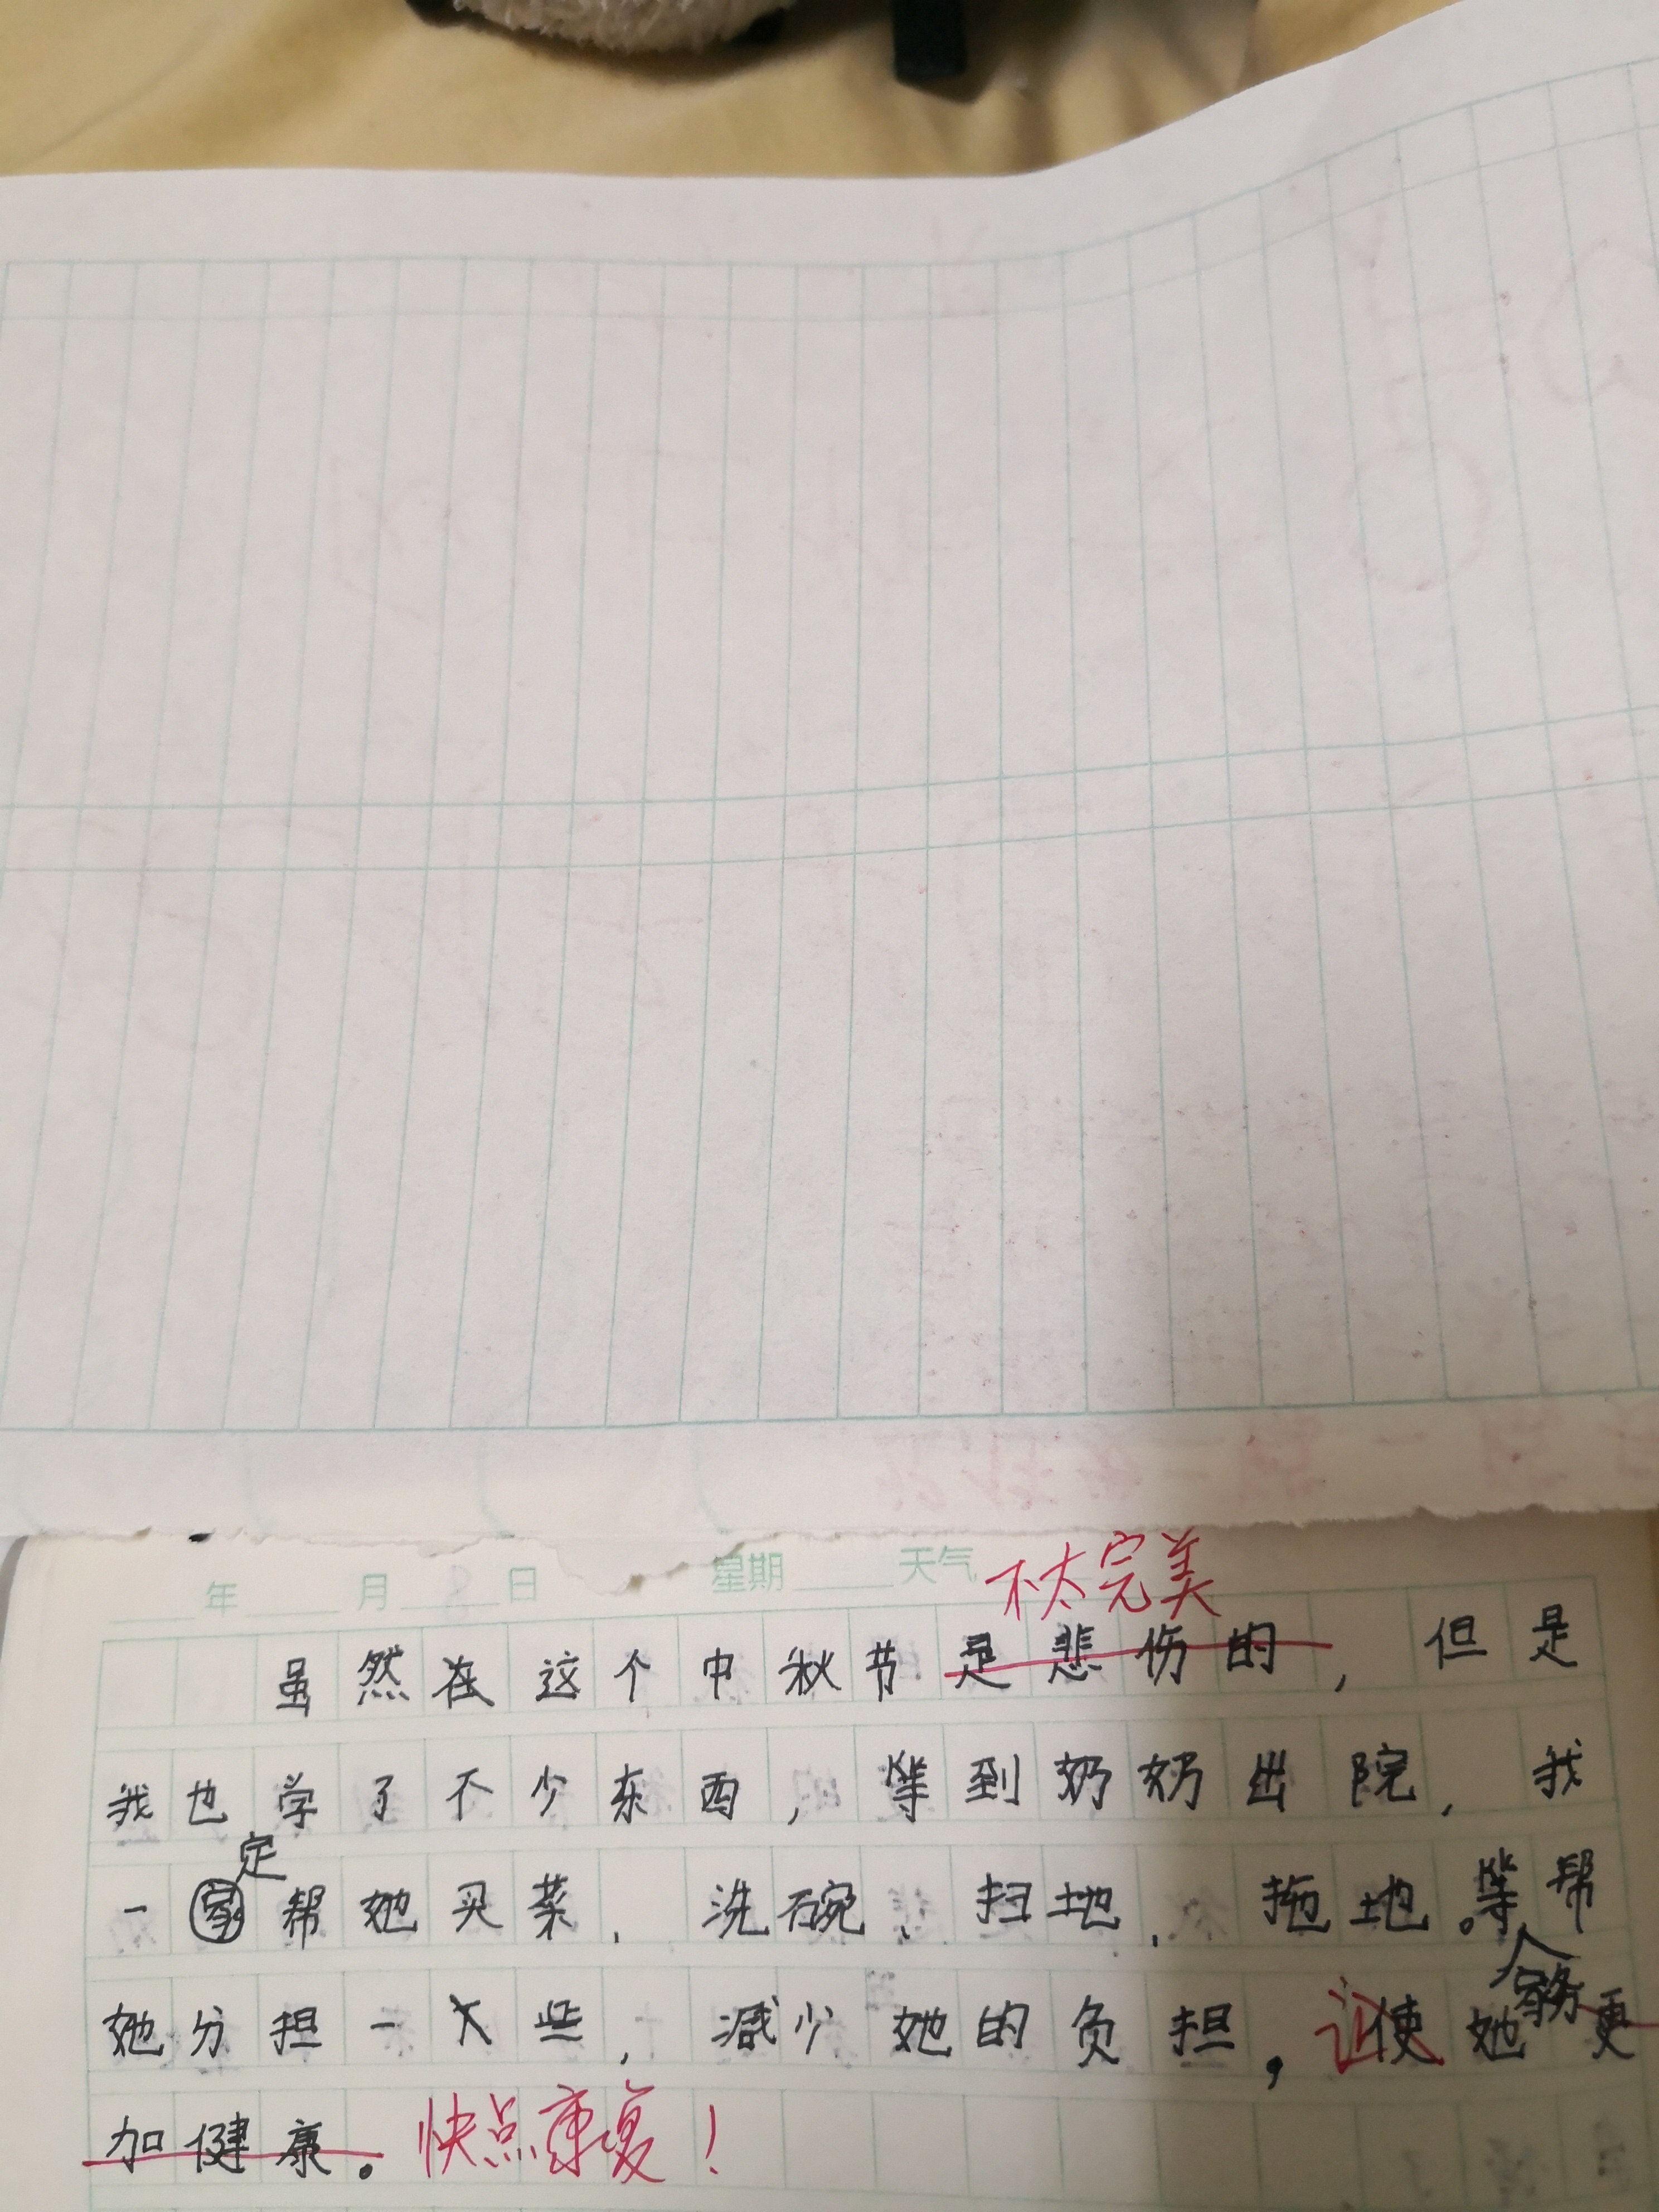 年 月 日 星期 天气
不太完美
虽然在这个中秋节是悲伤的，但是
我也学了不少东西，等到奶奶出院，我
定
一家帮她买菜、洗碗、扫地、拖地。等帮
家务
她分担一大些，减少她的负担，让使她更
加健康。快点康复！